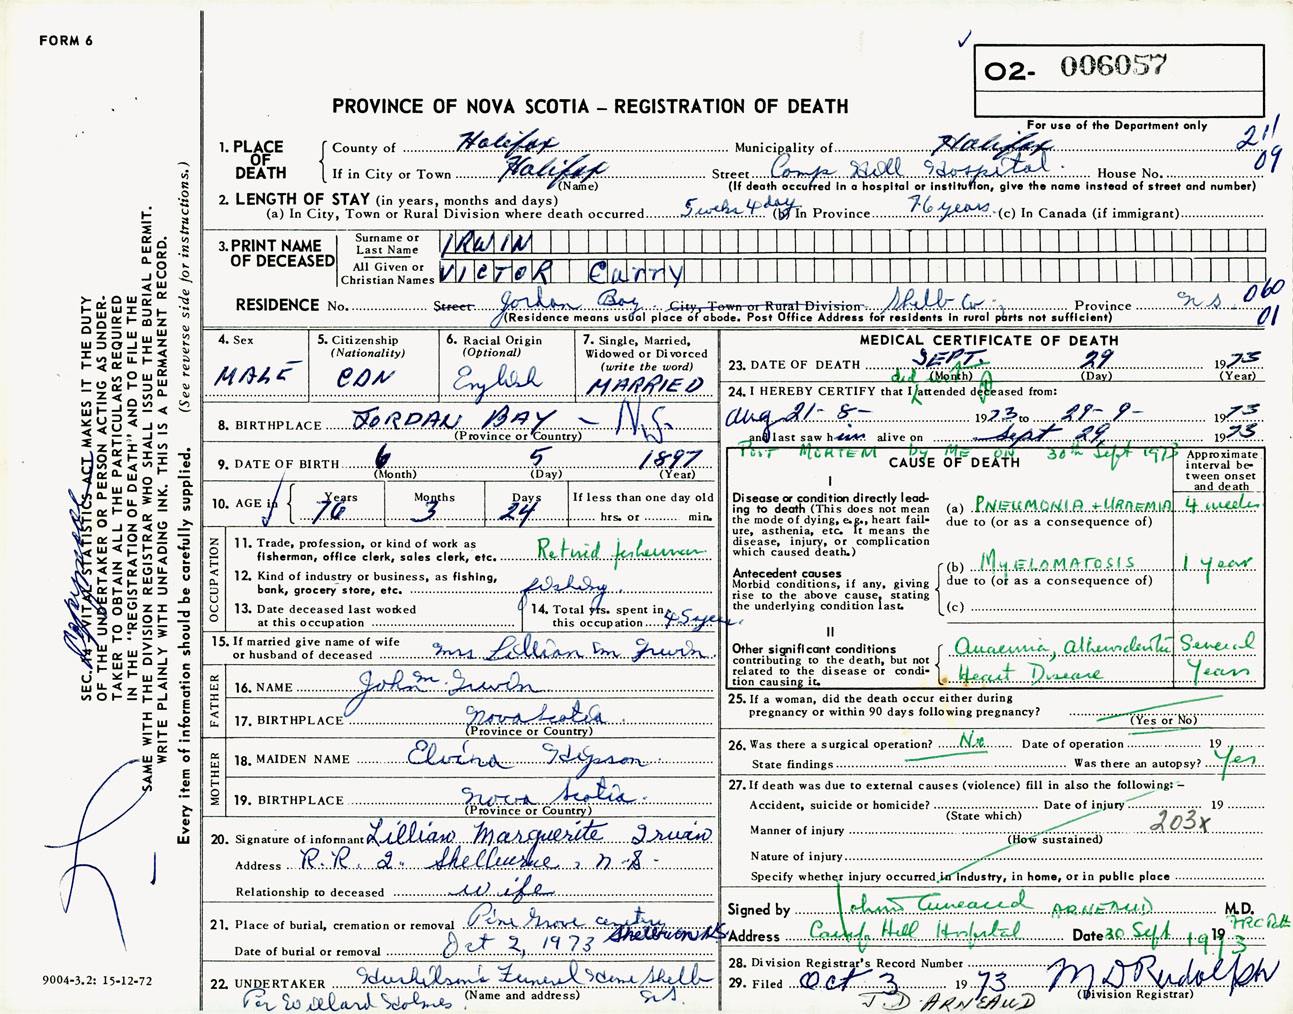 FORM 6
O2- 006057
PROVINCE OF NOVA SCOTIA – REGISTRATION OF DEATH
For use of the Department only
211
09
1. PLACE OF DEATH
County of Halifax Municipality of Halifax
If in City or Town Halifax (Name) Street Camp Hill Hospital House No.
(If death occurred in a hospital or institution, give the name instead of street and number)
2. LENGTH OF STAY (in years, months and days)
(a) In City, Town or Rural Division where death occurred 5 wks 4 day (b) In Province 76 years. (c) In Canada (if immigrant)
3. PRINT NAME OF DECEASED
Surname or Last Name IRWIN
All Given or Christian Names VICTOR Carry
RESIDENCE No. Street Jordan Bay City, Town or Rural Division Shelb Co. Province N.S.
060
01
(Residence means usual place of abode. Post Office Address for residents in rural parts not sufficient)
4. Sex
MALE
5. Citizenship (Nationality)
CDN
6. Racial Origin (Optional)
English
7. Single, Married, Widowed or Divorced (write the word)
MARRIED
8. BIRTHPLACE JORDAN BAY – N.S.
(Province or Country)
9. DATE OF BIRTH 6 5 1897
(Month) (Day) (Year)
10. AGE in Years 76 Months 3 Days 24 If less than one day old
hrs. or min.
OCCUPATION
11. Trade, profession, or kind of work as fisherman, office clerk, sales clerk, etc. Retired fisherman
12. Kind of industry or business, as fishing, bank, grocery store, etc. fishing
13. Date deceased last worked at this occupation
14. Total yrs. spent in this occupation 45 years.
15. If married give name of wife or husband of deceased Mrs Lillian M Irwin.
FATHER
16. NAME John M. Irwin
17. BIRTHPLACE Nova Scotia
(Province or Country)
MOTHER
18. MAIDEN NAME Elvina Hipson
19. BIRTHPLACE Nova Scotia.
(Province or Country)
20. Signature of informant Lillian Marguerite Irwin
Address R.R. 2. Shelburne, N-S-
Relationship to deceased wife
21. Place of burial, cremation or removal Pine Grove Shelburn N.S.
Date of burial or removal Oct 2, 1973
22. UNDERTAKER Funeral Home Shelb
N.S.
(Name and address)
Per Willard Holmes
MEDICAL CERTIFICATE OF DEATH
23. DATE OF DEATH SEPT. 29 1973
(Month) (Day) (Year)
24. I HEREBY CERTIFY that I did not attended deceased from:
Aug 21-8- 1973 to 29-9- 1973
and last saw him alive on Sept 29 1973
POST MORTEM by ME ON 30th Sept 1973
CAUSE OF DEATH
Approximate interval between onset and death
I
Disease or condition directly leading to death (This does not mean the mode of dying, e.g., heart failure, asthenia, etc. It means the disease, injury, or complication which caused death.)
(a) PNEUMONIA + URAEMIA 4 weeks
due to (or as a consequence of)
Antecedent causes
Morbid conditions, if any, giving rise to the above cause, stating the underlying condition last.
(b) MYELOMATOSIS 1 year
due to (or as a consequence of)
(c)
II
Other significant conditions contributing to the death, but not related to the disease or condition causing it.
Anaemia, Heart Disease Several Years
25. If a woman, did the death occur either during pregnancy or within 90 days following pregnancy?
(Yes or No)
26. Was there a surgical operation? No Date of operation 19
State findings Was there an autopsy? Yes
27. If death was due to external causes (violence) fill in also the following:–
Accident, suicide or homicide? Date of injury 19
(State which)
Manner of injury 203x
(How sustained)
Nature of injury
Specify whether injury occurred in industry, in home, or in public place
Signed by ARNEAUD M.D.
Address Camp Hill Hospital Date 30 Sept 1973
28. Division Registrar's Record Number
29. Filed Oct 3 1973 M D Rudolph
(Division Registrar)
J. D ARNEAUD
SEC. 14 – VITAL STATISTICS ACT MAKES IT THE DUTY
OF THE UNDERTAKER OR PERSON ACTING AS UNDER-
TAKER TO OBTAIN ALL THE PARTICULARS REQUIRED
IN THE "REGISTRATION OF DEATH" AND TO FILE THE
SAME WITH THE DIVISION REGISTRAR WHO SHALL ISSUE THE BURIAL PERMIT.
WRITE PLAINLY WITH UNFADING INK. THIS IS A PERMANENT RECORD.
Every item of information should be carefully supplied. (See reverse side for instructions.)
9004-3.2: 15-12-72